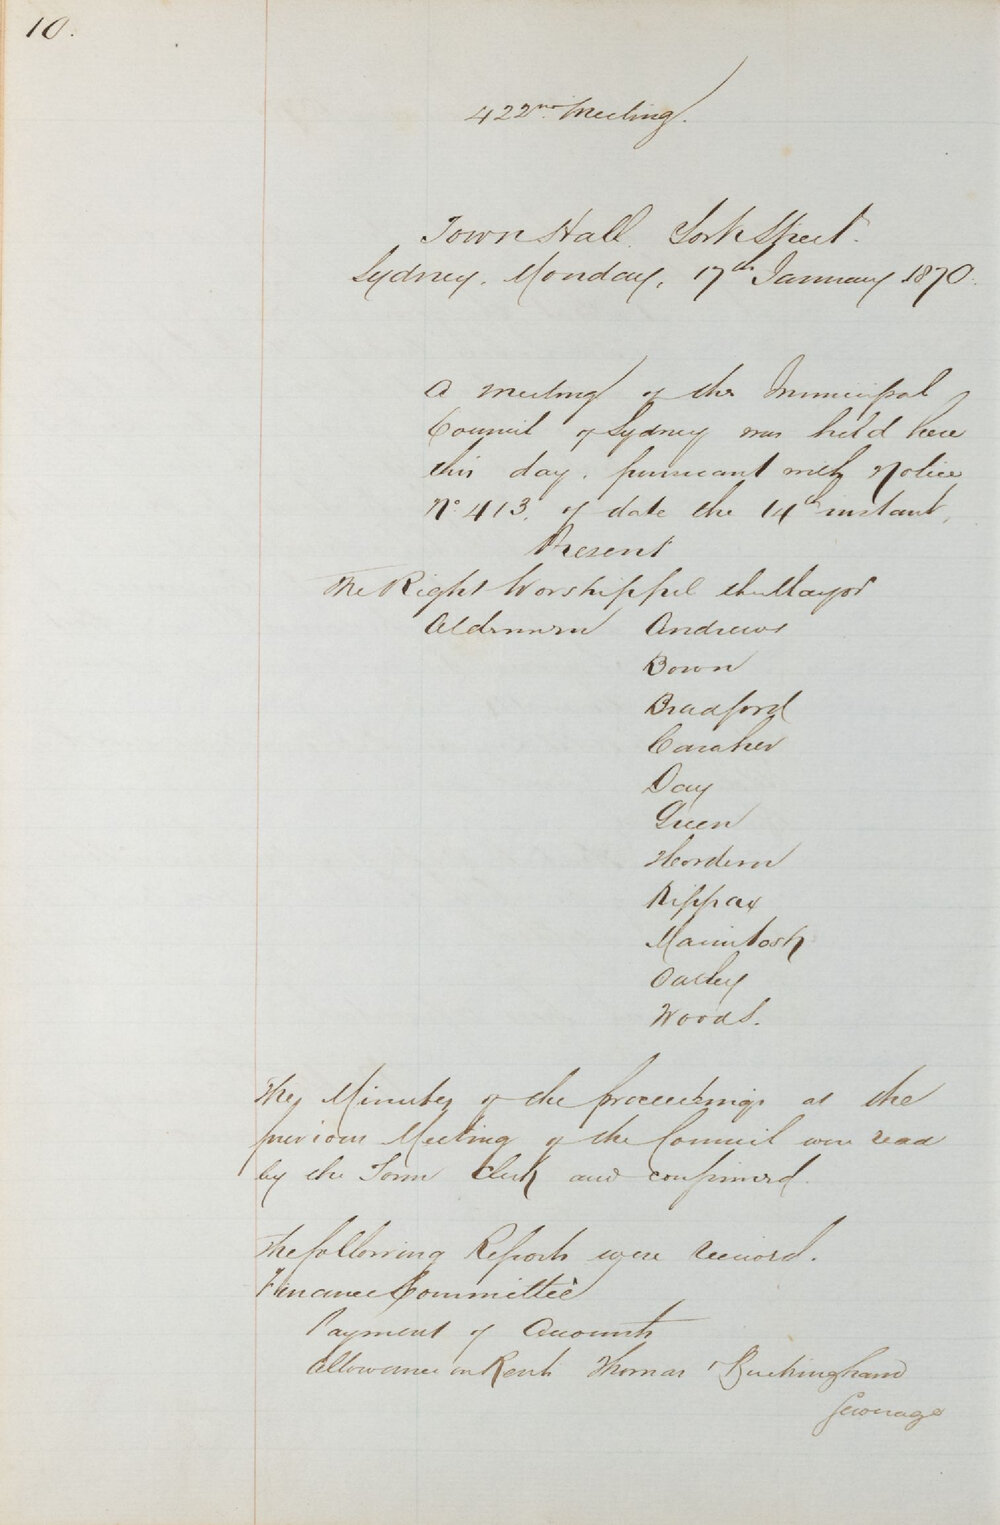 10.
422nd Meeting.
Town Hall York Street.
Sydney, Monday, 17th January 1870.
A meeting of the Municipal
Council of Sydney was held here
this day, pursuant with Notice
No. 413, of date the 14th instant,
Present
The Right Worshipful the Mayor
Aldermen Andrews
Bown
Bradford
Caraher
Day
Green
Hordern
Kippax
Macintosh
Oatley
Woods.
The Minutes of the proceedings at the
previous Meeting of the Council were read
by the Town Clerk and confirmed.
The following Reports were received.
Finance Committee
Payment of Accounts
Allowance on Rents Thomas Buckingham
Sewerage